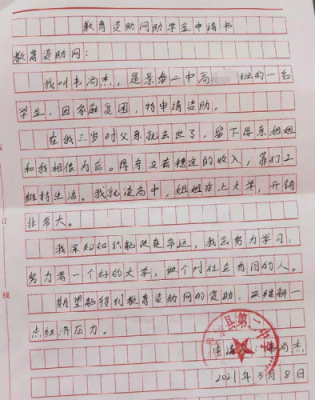 教育资助网助学金申请书
教育资助网：
我叫韦尚杰，是景泰二中高 班的一名
学生，因家庭贫困，特申请资助。
在我三岁时父亲就去世了，留下母亲姐姐
和我相依为命。母亲没有稳定的收入，靠打工
维持生活。我就读高中，姐姐在上大学，开销
非常大。
我深知知识能改变命运，我会努力学习，
努力考一个好的大学，做个对社会有用的人。
期望能得到教育资助网的资助，来缓解一
点经济压力。
县第二中学
申请人：韦尚杰
2021年3月8日
订
线